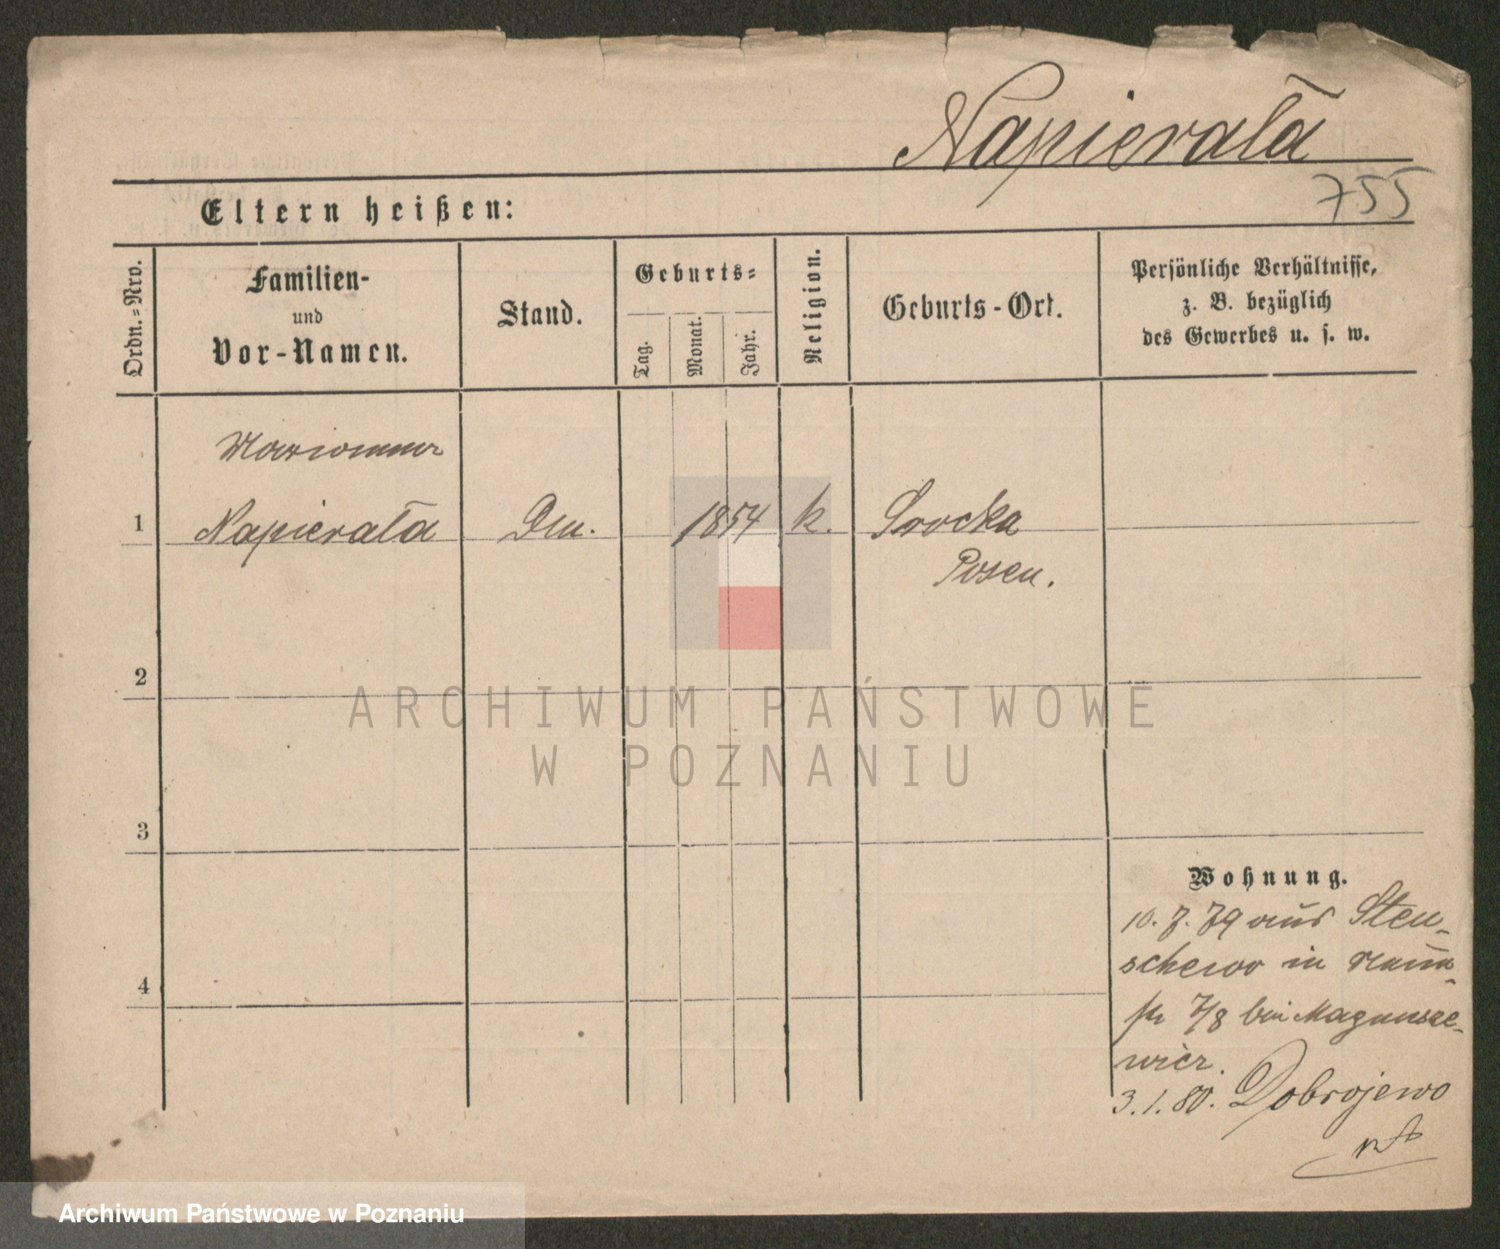 Napierała
755
Eltern heißen:
Ordn.-Nro.
Familien-
und
Vor-Namen.
Stand.
Geburts-
Tag.
Monat.
Jahr.
Religion.
Geburts-Ort.
Persönliche Verhältnisse,
z. B. bezüglich
des Gewerbes u. s. w.
Marianna
1 Napierała 1854 k. Srocka
Posen.
2
3
4
Wohnung.
10. 7. 79 aus Sten-
schewo in
7/8 bei Magnusze-
wicz.
3. 1. 80. Dobrojewo
ARCHIWUM PAŃSTWOWE
W POZNANIU
Archiwum Państwowe w Poznaniu